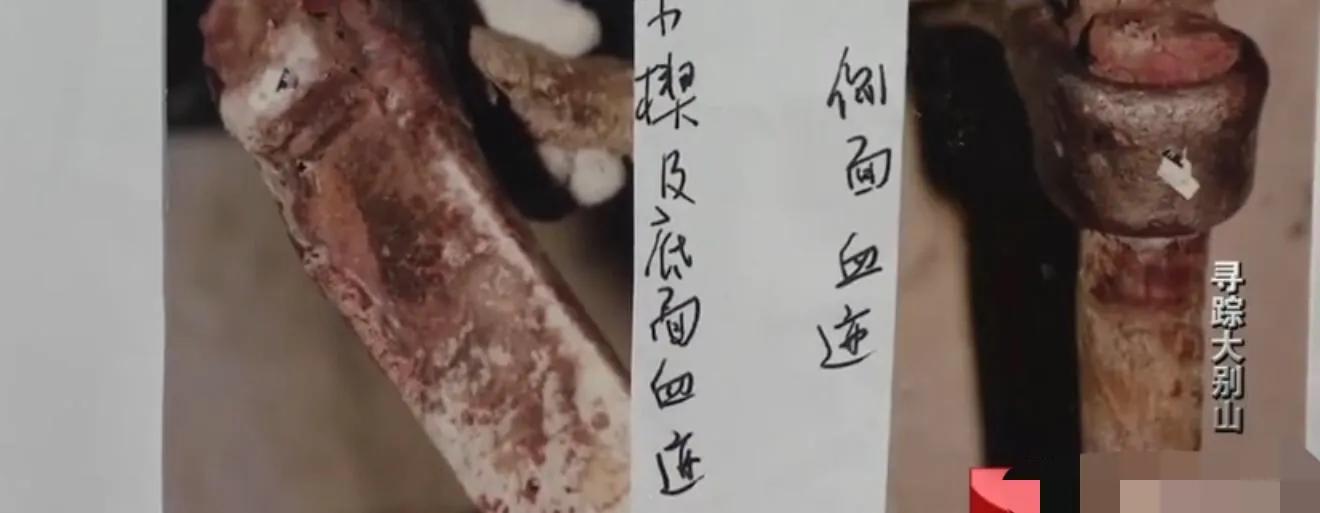 木楔及底面血迹
侧面血迹
寻踪大别山